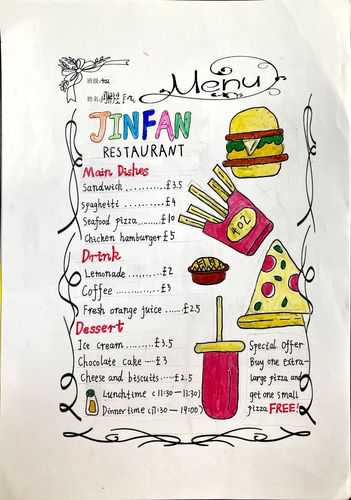 Menu
班级:402
姓名:
JINFAN
RESTAURANT
Main Dishes
Sandwich...........£3.5
spaghetti.........£4
Seafood pizza.......£10
Chicken hamburger £5
402
Drink
Lemonade..........£2
Coffee............£3
Fresh orange juice......£2.5
Dessert
Ice cream..........£3.5
Chocolate cake...£3
Cheese and biscuits.....£2.5
Lunchtime (11:30—13:30)
Dinnertime (17:30—19:00)
Special Offer
Buy one extra-
large pizza and
get one small
pizza FREE!